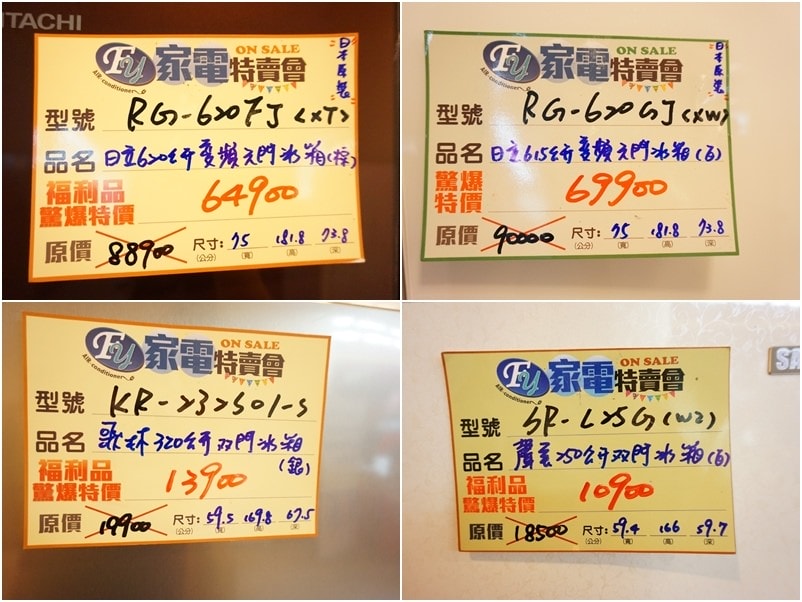 HITACHI
FU 家電特賣會 ON SALE
AIR-conditioner
日本原裝
型號 RG-620FJ (XT)
品名 日立620公升變頻六門冰箱(棕)
福利品
驚爆特價 64900
原價 88900 尺寸: 75 181.8 73.8
(公分) (寬) (高) (深)
FU 家電特賣會 ON SALE
AIR-conditioner
日本原裝
型號 RG-620GJ (XW)
品名 日立615公升變頻六門冰箱(白)
驚爆
特價 69900
原價 90000 尺寸: 75 181.8 73.8
(公分) (寬) (高) (深)
FU 家電特賣會 ON SALE
AIR-conditioner
型號 KR-232S01-S
品名 歌林320公升双門冰箱
(銀)
福利品
驚爆特價 13900
原價 19900 尺寸: 59.5 169.8 67.5
(公分) (寬) (高) (深)
FU 家電特賣會 ON SALE
AIR-conditioner
型號 SR-L25G(W2)
品名 聲宝250公升双門冰箱(白)
福利品
驚爆特價 10900
原價 18500 尺寸: 59.4 166 59.7
(公分) (寬) (高) (深)
SA